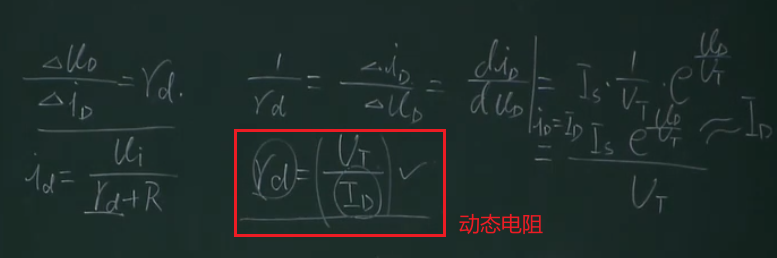 Δu_D/Δi_D = r_d.
i_d = u_i/(r_d+R)
1/r_d = Δi_D/Δu_D = di_D/du_D |_{i_D=I_D} = I_S · 1/U_T · e^{u_D/U_T}
= I_S e^{u_D/U_T}/U_T ≈ I_D
r_d = (U_T/I_D) ✓
动态电阻